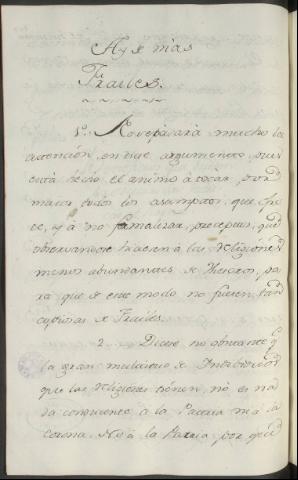 Ay de mas
Frailes.
1.º No reparará mucho la
atencion en este argumento, pues
está hecho el animo à tocar por
maior todos los asumptos, que
y à no formalizar preceptos, que
observandose hiciesen à las Religiones
menos abundantes de Theatros, pa
ra que de este modo no fuesen tan
de Frailes.
2. Dicese no obstante q.
la gran multitud de Individuos
que las Religiones tienen, no es na
da conducente à la Patria ni à la
Corona. No à la Patria por que